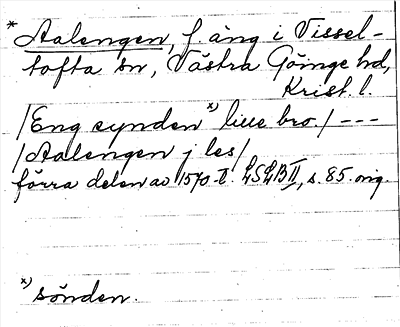 * Aalengen, f. äng i Vissel-
tofta sn, Västra Göinge hd,
Krist. l.
/Eng synden *) liue bro / ---
/Aalengen j les/
förra delen av 1570-t. LSLB II, s. 85. orig.
*) sönden.